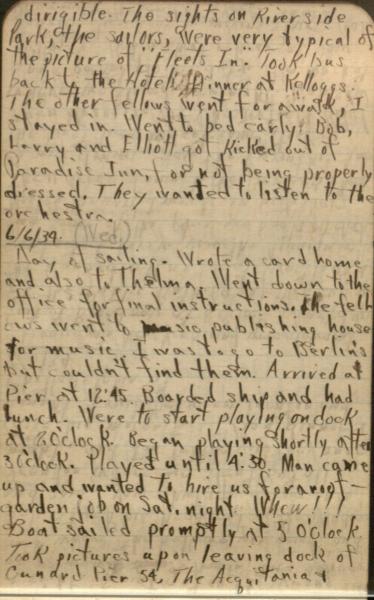 dirigible. The sights on River side
Park, the sailors, were very typical of
the picture of "Fleets In". Took bus
back to the Hotel. Dinner at Kelloggs.
The other fellows went for a walk, I
stayed in. Went to bed early. Bob,
Larry and Elliott got kicked out of
Paradise Inn, for not being properly
dressed. They wanted to listen to the
orchestra.
6/6/34. (Wed.)
Day of sailing. Wrote a card home
and also to Thelma. Went down to the
office for final instructions. The fell
ows went to music publishing house
for music. I was to go to Berlin's
but couldn't find them. Arrived at
Pier at 12:45. Boarded ship and had
lunch. Were to start playing on dock
at 2 O'clock. Began playing shortly after
3 O'clock. Played until 4:30. Man came
up and wanted to hire us for a roof-
garden job on Sat. night. Whew!!!
Boat sailed promptly at 5 O'clock.
Took pictures upon leaving dock of
Cunard Pier 54, The Acquitania